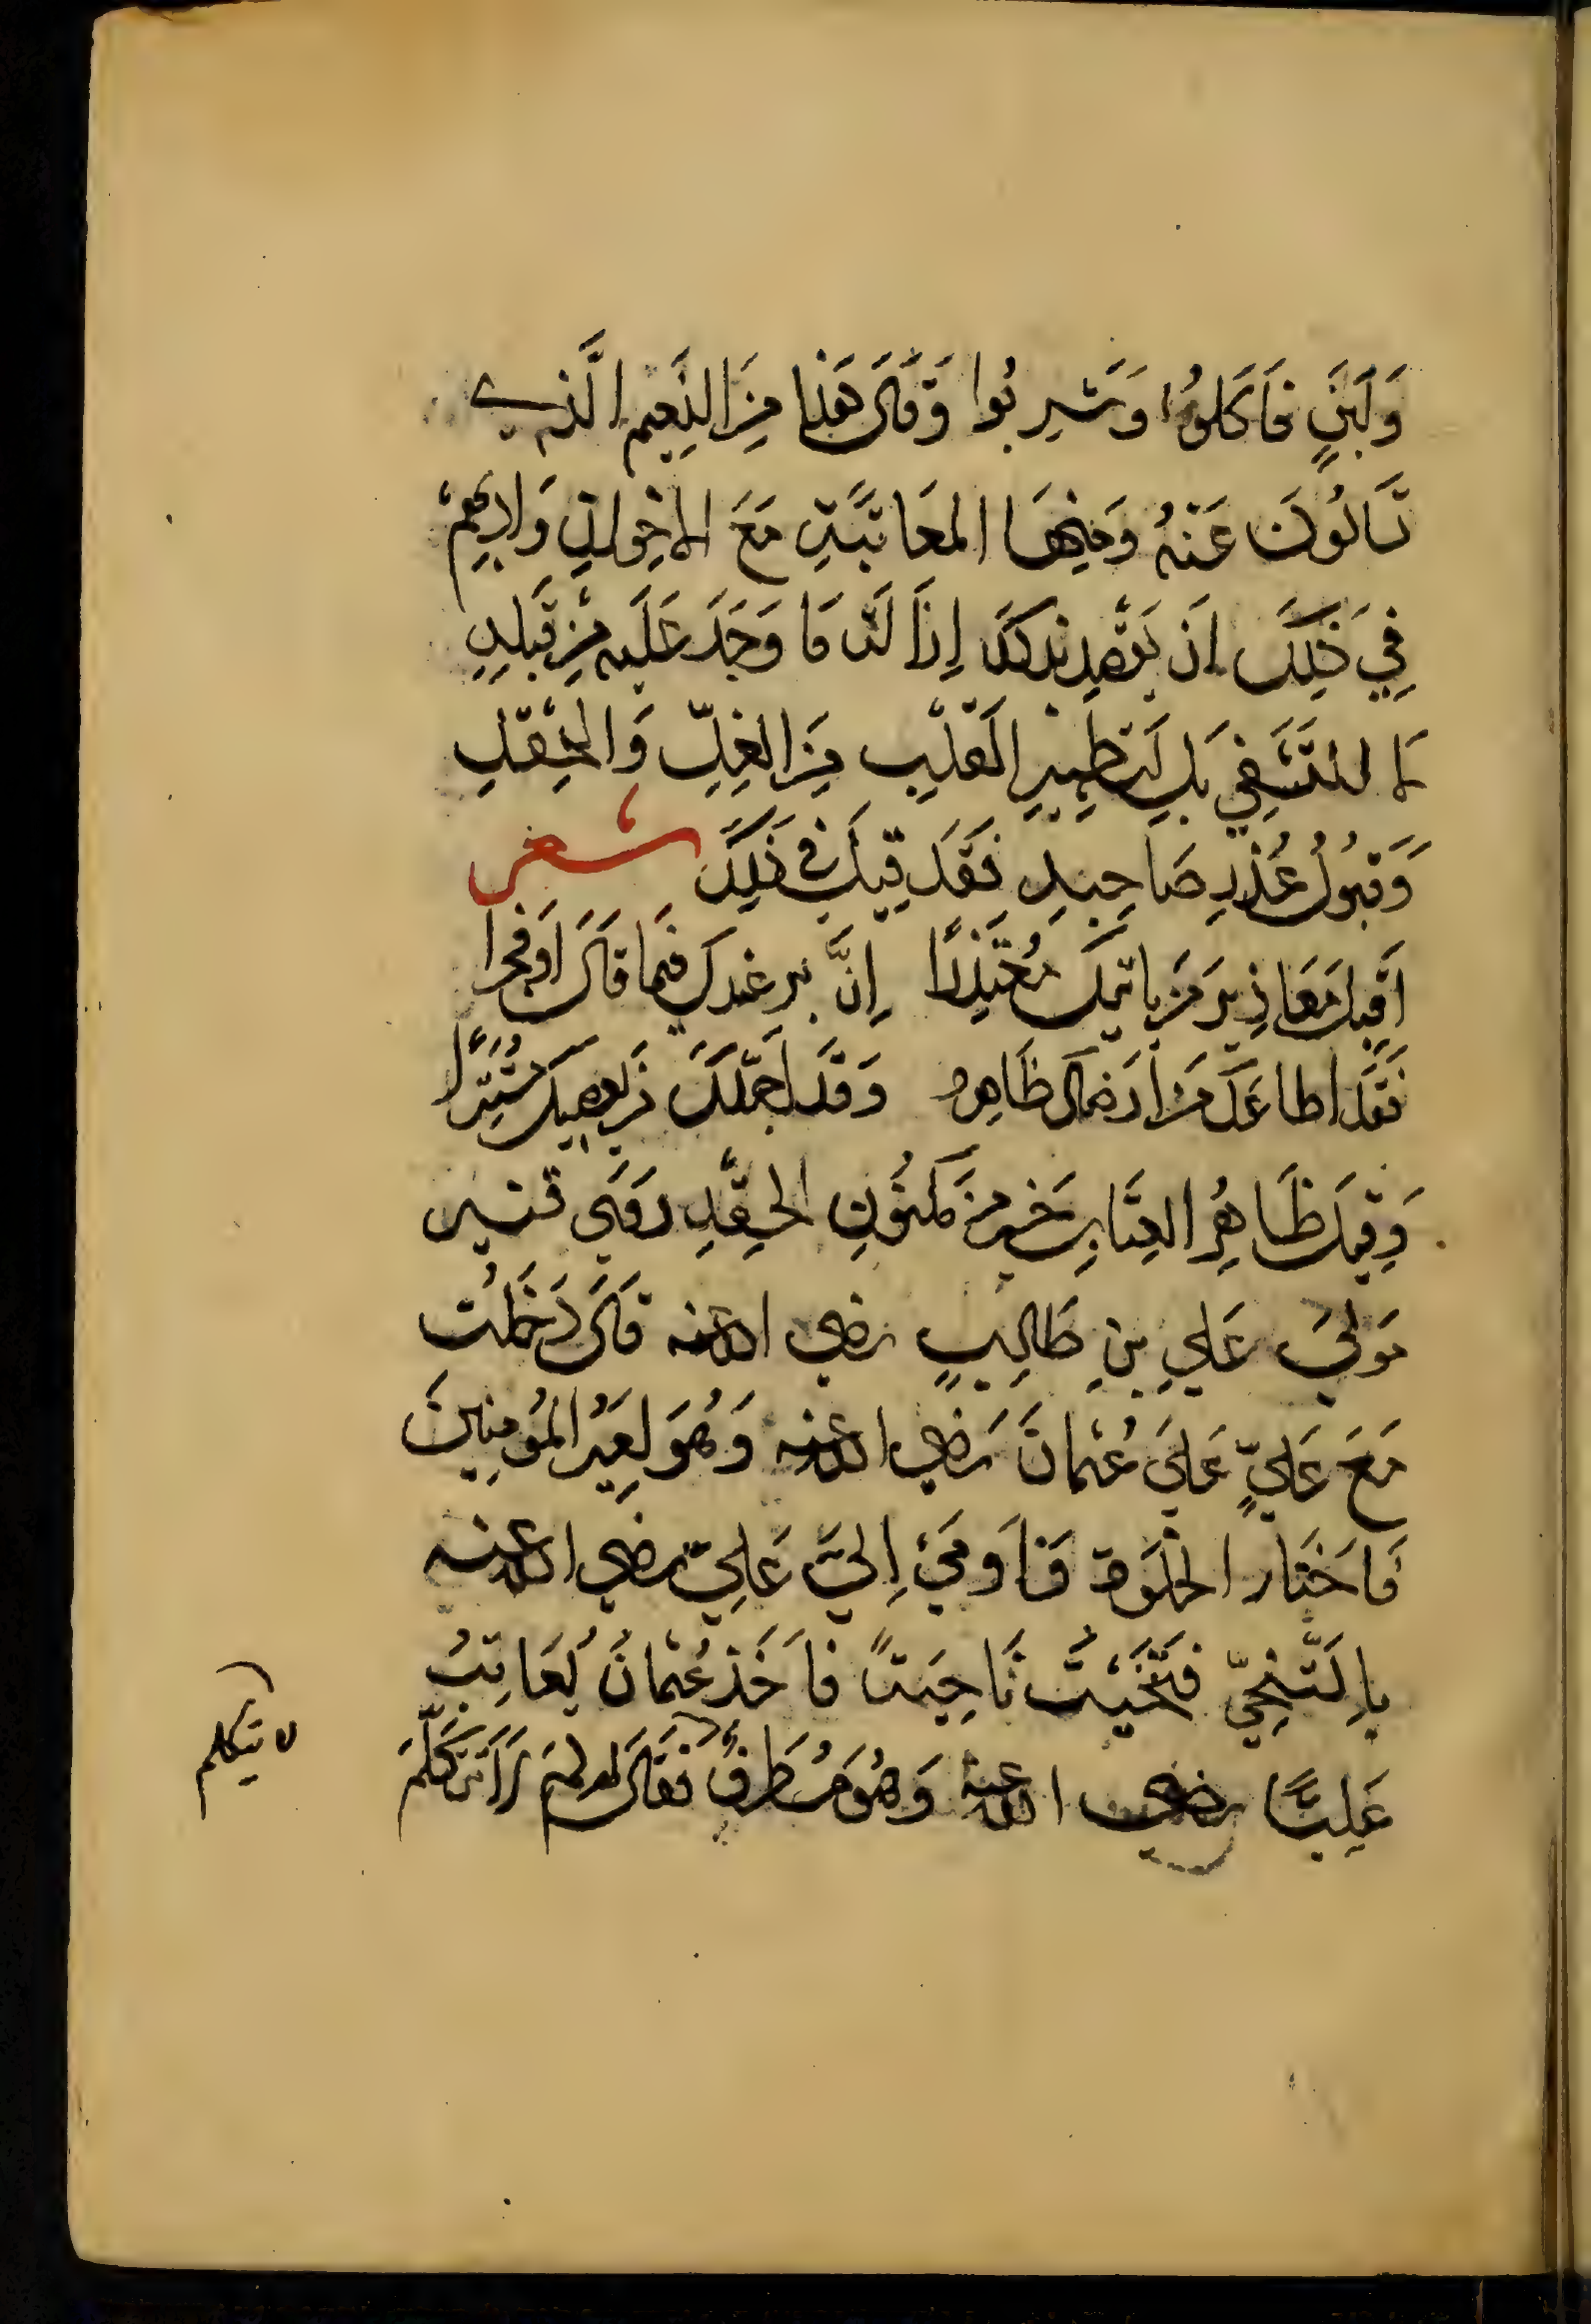 وَلَبَنٍ فَاَكَلُوا وَشَرِبُوا وَقَالَ هَذا مِنَ النَعِيم الَّذي
تَسَالُونَ عَنْهُ وَمِنهَا المعَاتبَةِ مَعَ الاخِوانِ وَادبهمْ
فِي ذَلِكَ اَن
لا للتَشَفِي بَل لتَطهِيرِ القَلْبِ مِنَ الغِلِّ وَالحِقْدِ
وَقَبُولُ عُذرِ صَاحِبهِ فقَد قِيلَ في ذَلِكَ شعر
اَقبِل مَعَاذِيرَ مَن يَاتيكَ مُعْتَذِرًا اِنَّ بر عندك فيما قالَ اَو فَجرا
فَقَد اطاعَكَ مَن ارضَاكَ ظَاهِرهُ وَقَد اجَلّكَ مَن يعصيكَ مُسْتَتِرًا
وَقيلَ ظَاهِرُ العِتَابِ خَير مِنْ مَكنُونِ الحِقْدِ رَوَى قنبر
مَولَى عَلِي بنِ طَالِبٍ رضي الله عنه قالَ دَخَلْت
مَعَ عَلِيٍّ عَلَى عُثْمانَ رَضي الله عنه وَهُوَ اَمِيرُ المؤمِنِينَ
فَاخَتَار الخَلوَة فَاَومَئ اِلَيَّ عَلِيّ رضي الله عنه
بِالتَّنَحِيّ فَتَنَحَّيْتُ نَاحِيَةً فاَخَذ عُثمانُ يُعَاتِبُ
عَلِيًّا رضي الله عنه وَهُوَ مُطرِقٌ فقَالَ لَه لِمَ لاَ تتكَلَّمَ
لا تتكلم